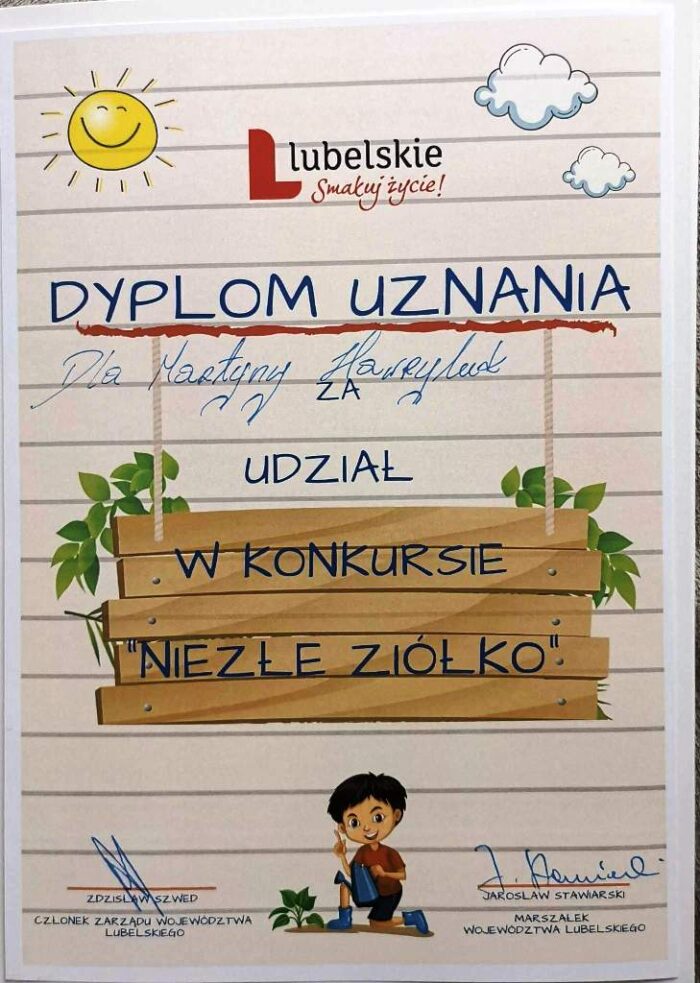 lubelskie
Smakuj życie!
DYPLOM UZNANIA
Dla Martyny Hawryluk
ZA
UDZIAŁ
W KONKURSIE
"NIEZŁE ZIÓŁKO"
ZDZISŁAW SZWED
CZŁONEK ZARZĄDU WOJEWÓDZTWA
LUBELSKIEGO
JAROSŁAW STAWIARSKI
MARSZAŁEK
WOJEWÓDZTWA LUBELSKIEGO